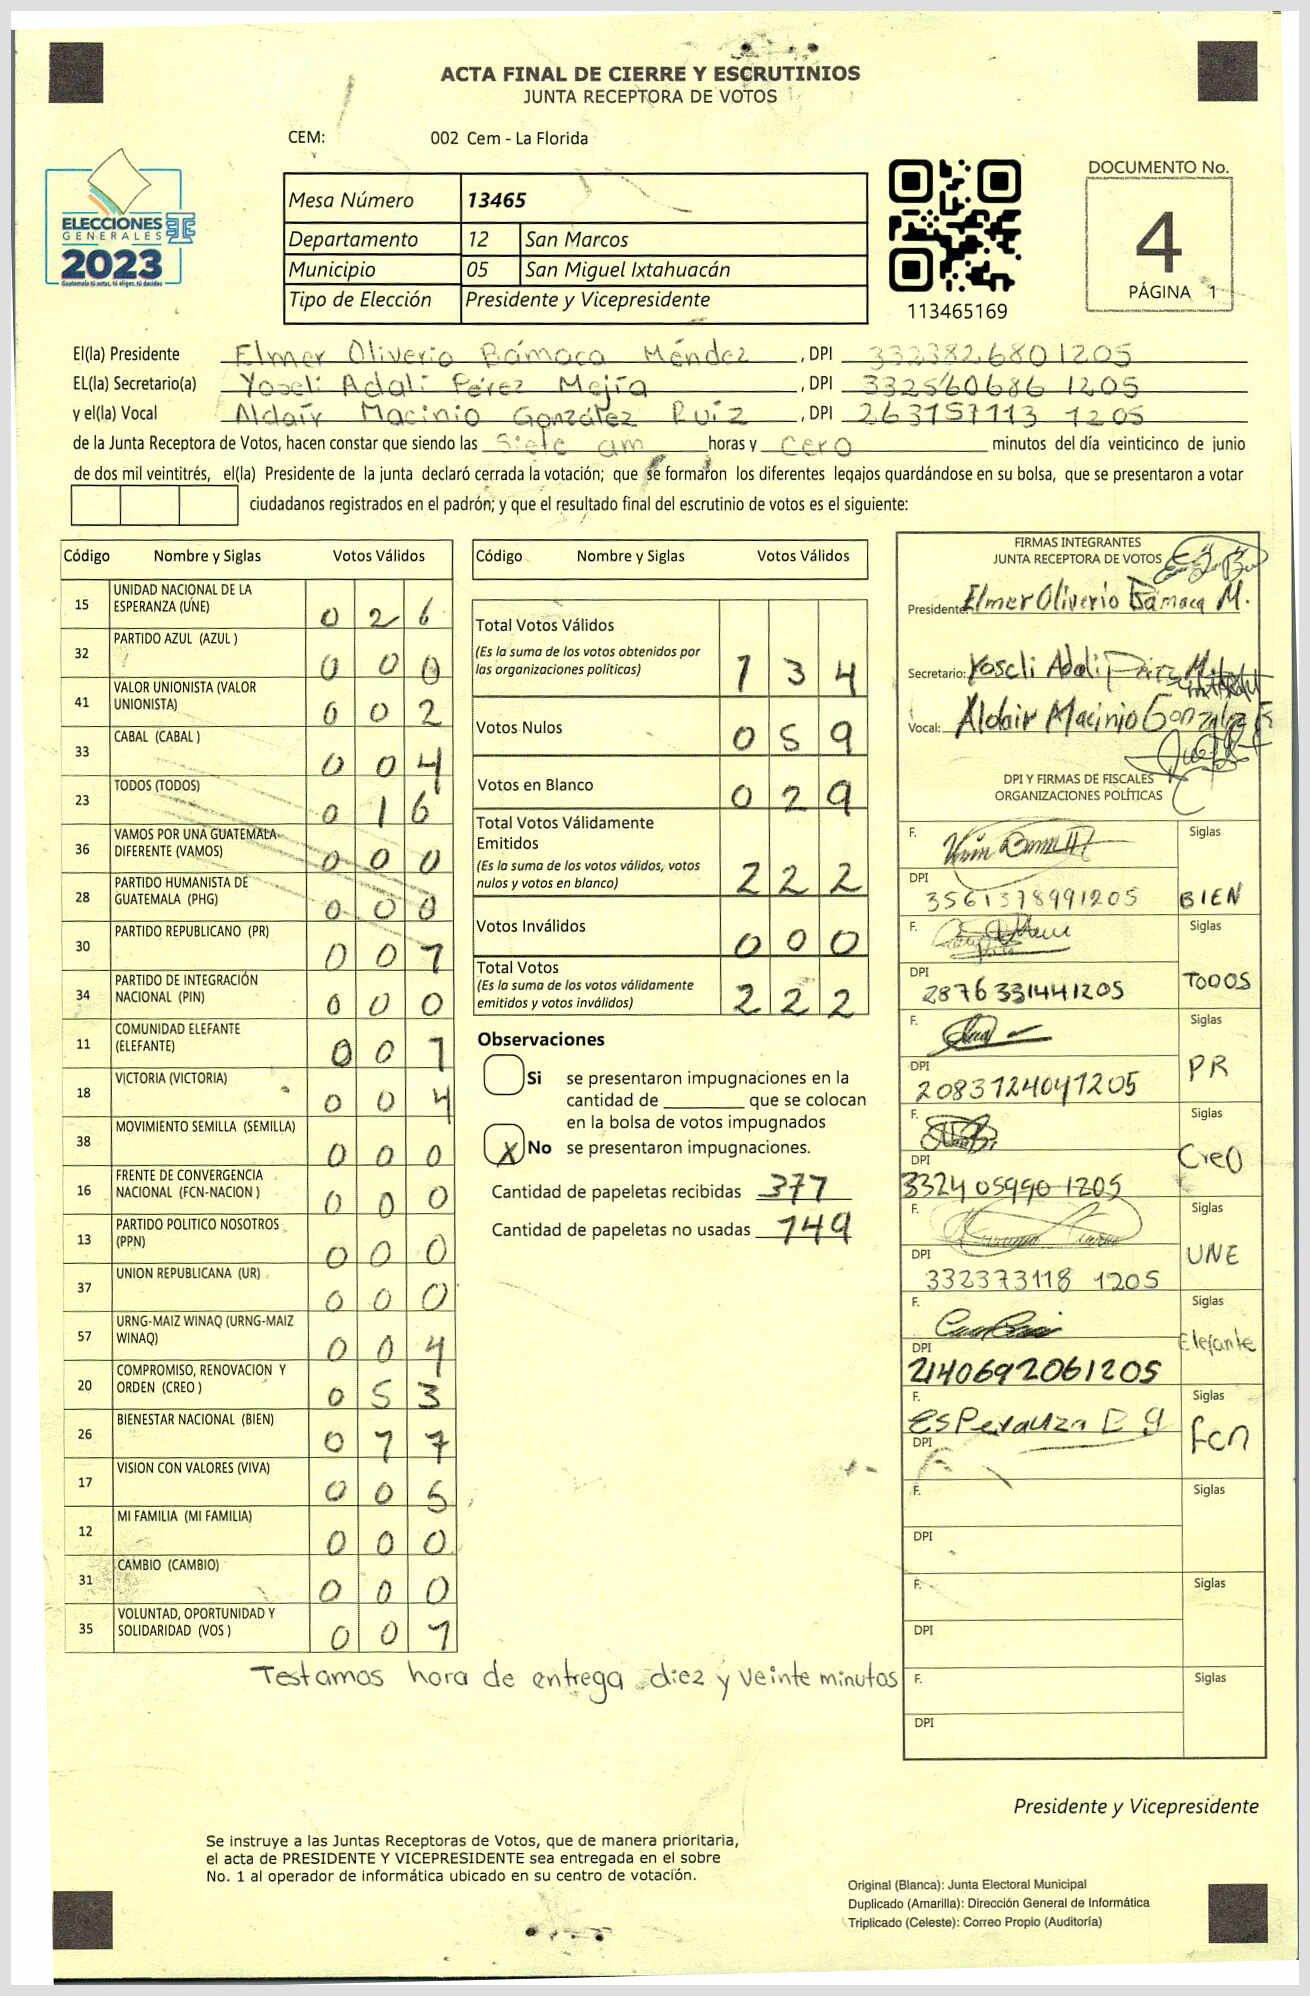 ACTA FINAL DE CIERRE Y ESCRUTINIOS
JUNTA RECEPTORA DE VOTOS
CEM: 002 Cem - La Florida
ELECCIONES
GENERALES
2023
Guatemala tú votas, tú eliges, tú decides
Mesa Número 13465
Departamento 12 San Marcos
Municipio 05 San Miguel Ixtahuacán
Tipo de Elección Presidente y Vicepresidente
113465169
DOCUMENTO No.
4
PÁGINA 1
El(la) Presidente Elmer Oliverio Bámaca Méndez , DPI 3323826801205
EL(la) Secretario(a) Yoseli Adali Pérez Mejía , DPI 332560686 1205
y el(la) Vocal Aldair Macinio González Ruíz , DPI 263157113 1205
de la Junta Receptora de Votos, hacen constar que siendo las Siete am horas y cero minutos del día veinticinco de junio
de dos mil veintitrés, el(la) Presidente de la junta declaró cerrada la votación; que se formaron los diferentes legajos guardándose en su bolsa, que se presentaron a votar
ciudadanos registrados en el padrón; y que el resultado final del escrutinio de votos es el siguiente:
Código Nombre y Siglas Votos Válidos
15 UNIDAD NACIONAL DE LA ESPERANZA (UNE) 0 2 6
32 PARTIDO AZUL (AZUL ) 0 0 0
41 VALOR UNIONISTA (VALOR UNIONISTA) 0 0 2
33 CABAL (CABAL ) 0 0 4
23 TODOS (TODOS) 0 1 6
36 VAMOS POR UNA GUATEMALA DIFERENTE (VAMOS) 0 0 0
28 PARTIDO HUMANISTA DE GUATEMALA (PHG) 0 0 0
30 PARTIDO REPUBLICANO (PR) 0 0 1
34 PARTIDO DE INTEGRACIÓN NACIONAL (PIN) 0 0 0
11 COMUNIDAD ELEFANTE (ELEFANTE) 0 0 1
18 VICTORIA (VICTORIA) 0 0 4
38 MOVIMIENTO SEMILLA (SEMILLA) 0 0 0
16 FRENTE DE CONVERGENCIA NACIONAL (FCN-NACION ) 0 0 0
13 PARTIDO POLITICO NOSOTROS (PPN) 0 0 0
37 UNION REPUBLICANA (UR) 0 0 0
57 URNG-MAIZ WINAQ (URNG-MAIZ WINAQ) 0 0 4
20 COMPROMISO, RENOVACION Y ORDEN (CREO ) 0 5 3
26 BIENESTAR NACIONAL (BIEN) 0 1 7
17 VISION CON VALORES (VIVA) 0 0 5
12 MI FAMILIA (MI FAMILIA) 0 0 0
31 CAMBIO (CAMBIO) 0 0 0
35 VOLUNTAD, OPORTUNIDAD Y SOLIDARIDAD (VOS ) 0 0 1
Testamos hora de entrega diez y veinte minutos
Código Nombre y Siglas Votos Válidos
Total Votos Válidos
(Es la suma de los votos obtenidos por
las organizaciones políticas) 1 3 4
Votos Nulos 0 5 9
Votos en Blanco 0 2 9
Total Votos Válidamente
Emitidos
(Es la suma de los votos válidos, votos
nulos y votos en blanco) 2 2 2
Votos Inválidos 0 0 0
Total Votos
(Es la suma de los votos válidamente
emitidos y votos inválidos) 2 2 2
Observaciones
Si se presentaron impugnaciones en la
cantidad de ________ que se colocan
en la bolsa de votos impugnados
X No se presentaron impugnaciones.
Cantidad de papeletas recibidas 377
Cantidad de papeletas no usadas 149
FIRMAS INTEGRANTES
JUNTA RECEPTORA DE VOTOS
Presidente: Elmer Oliverio Bámaca M.
Secretario: Yoseli Adali Pérez M.
Vocal: Aldair Macinio González R
DPI Y FIRMAS DE FISCALES
ORGANIZACIONES POLÍTICAS
F. Siglas
DPI 3561378991205 BIEN
F. Siglas
DPI 2876331441205 TODOS
F. Siglas
DPI 2083124041205 PR
F. Siglas
DPI 332405990 1205 CreO
F. Siglas
DPI 332373118 1205 UNE
F. Siglas
DPI 2140692061205 Elefante
F. Esperanza Siglas
DPI fcn
F. Siglas
DPI
F. Siglas
DPI
F. Siglas
DPI
Presidente y Vicepresidente
Se instruye a las Juntas Receptoras de Votos, que de manera prioritaria,
el acta de PRESIDENTE Y VICEPRESIDENTE sea entregada en el sobre
No. 1 al operador de informática ubicado en su centro de votación.
Original (Blanca): Junta Electoral Municipal
Duplicado (Amarilla): Dirección General de Informática
Triplicado (Celeste): Correo Propio (Auditoría)